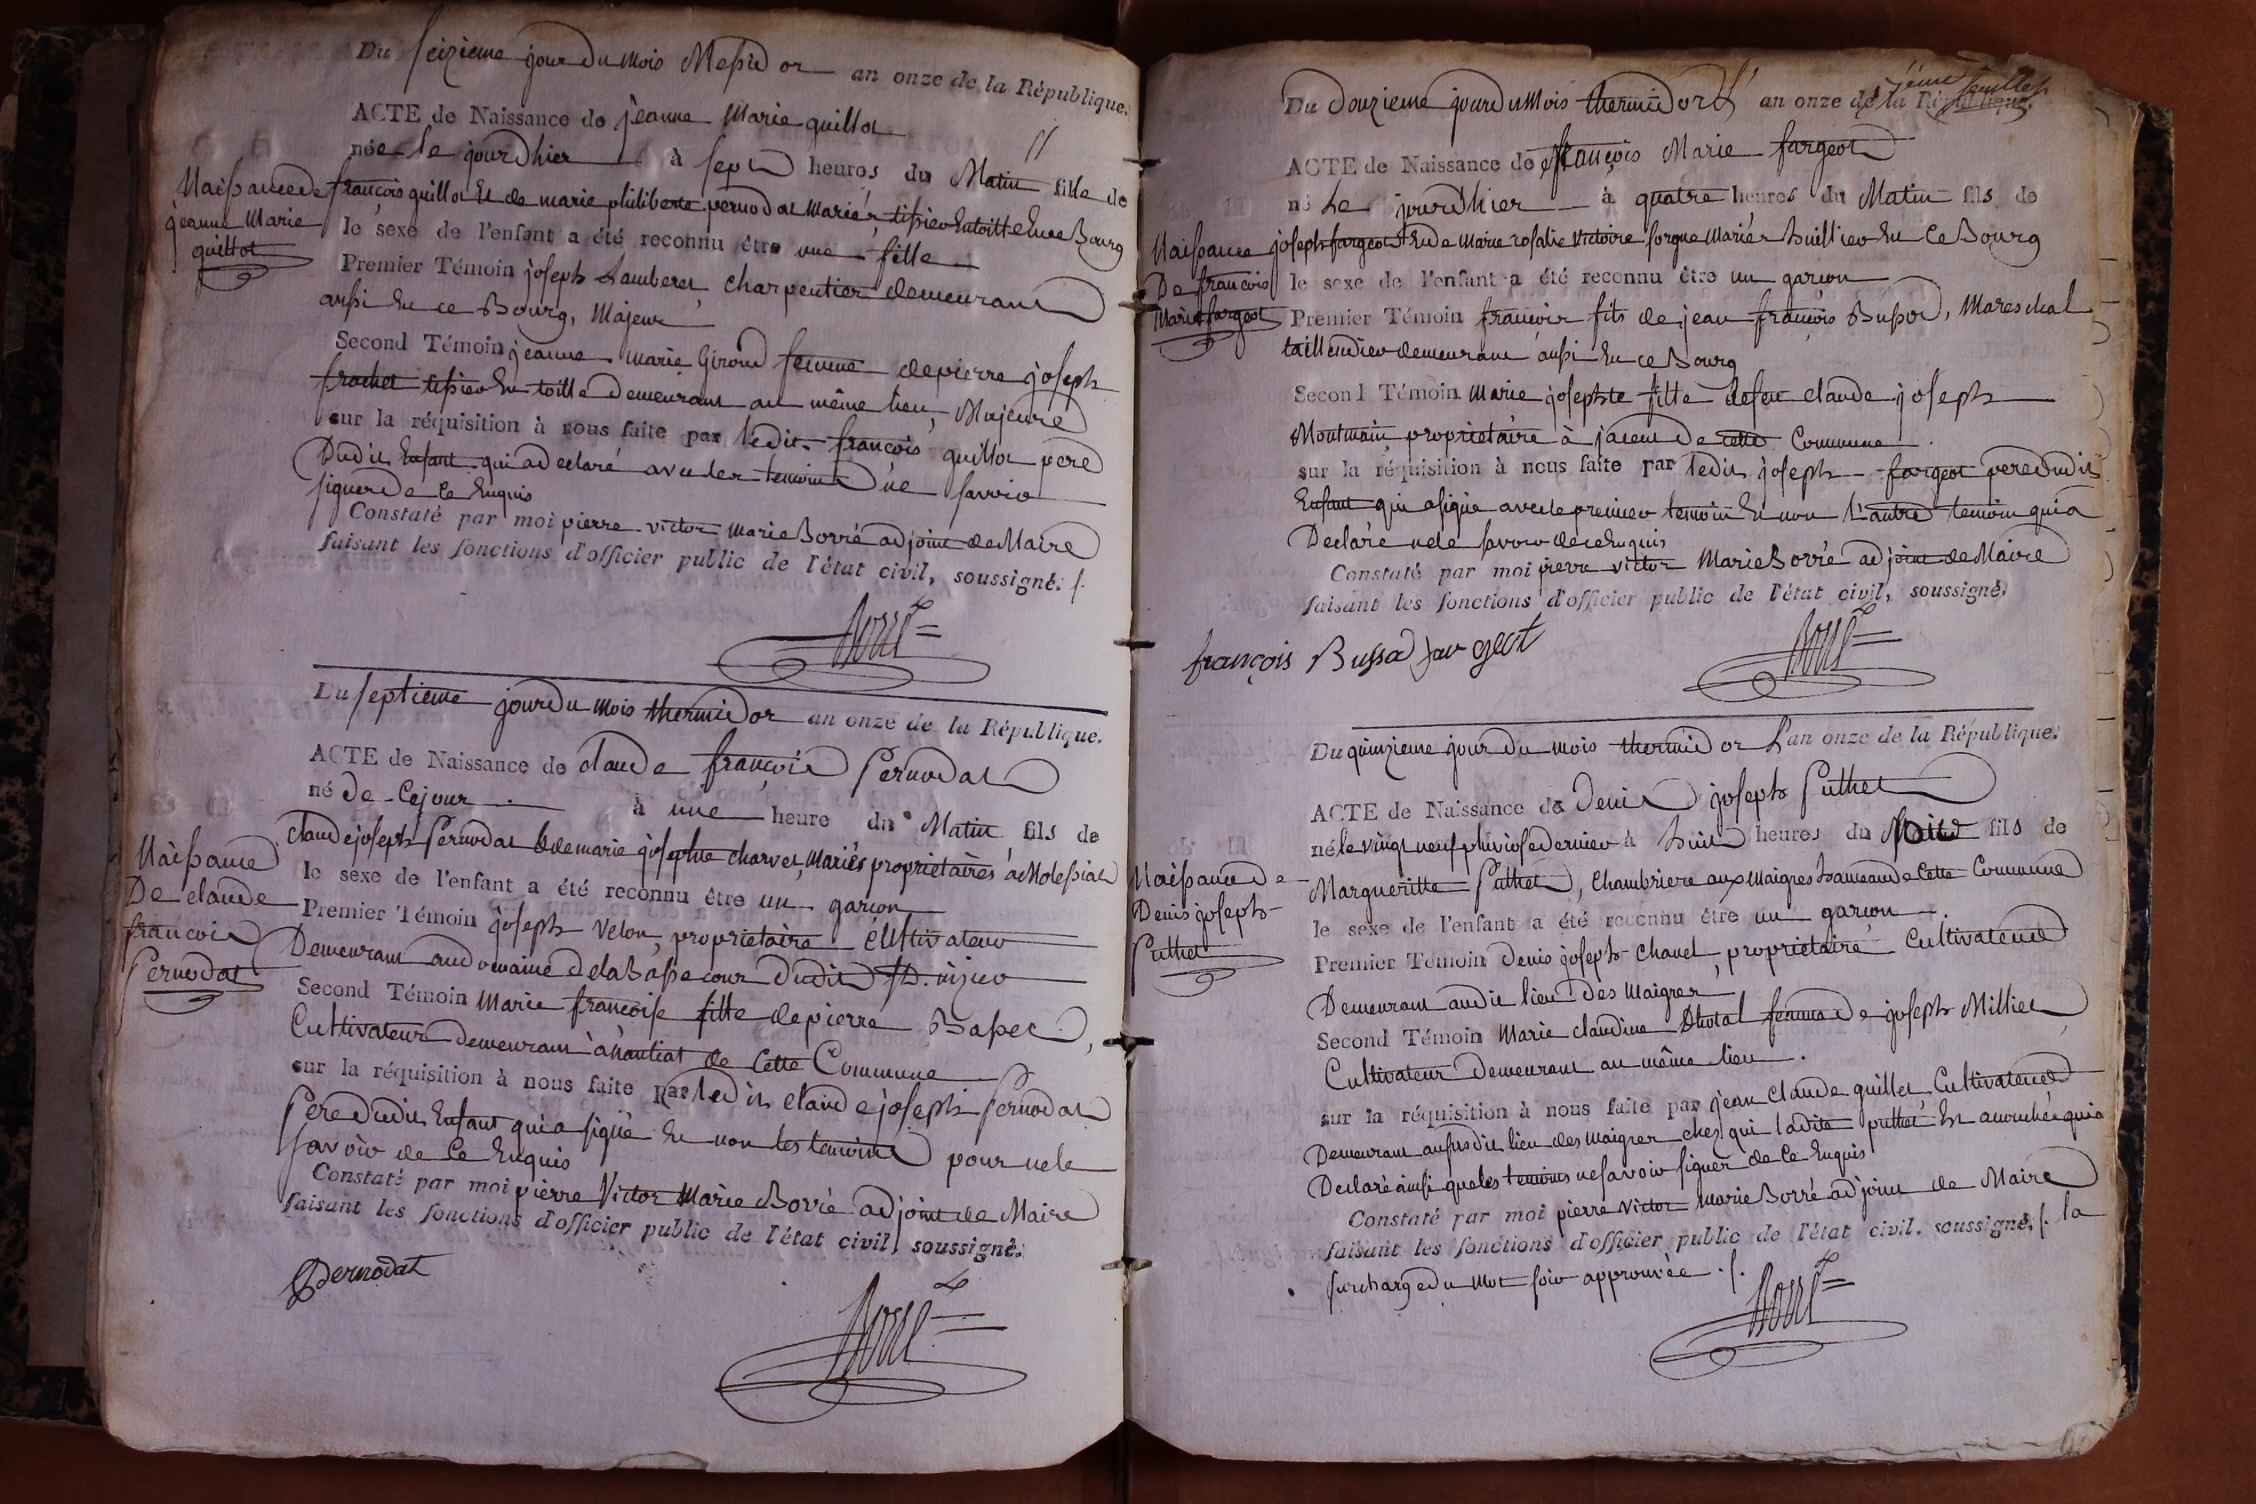 Du seizieme jour du mois Messidor an onze de la République.
ACTE de Naissance de jeanne Marie guillot
née le jourdhier à sept heures du Matin fille de
françois guillot Et de marie philiberte pernodat Mariés, tissier En toille En ce Bourg
Naissance de
jeanne Marie
guillot
le sexe de l'enfant a été reconnu être une fille
Premier Témoin joseph Lamberet, charpentier demeurant
aussi En ce Bourg, Majeur
Second Témoin jeanne marie Giroud femme de pierre joseph
frachet tissier En toille Demeurant au même lieu, Majeure
sur la réquisition à nous faite par ledit françois guillot pere
Dudit Enfant qui a declaré avec les temoins ne savoir
signer De ce Enquis
Constaté par moi pierre victor marie Borré adjoint de Maire
faisant les fonctions d'officier public de l'état civil, soussigné. /.
Borré
Du septieme jour du mois thermidor an onze de la République.
ACTE de Naissance de claude françois Pernodat
né de ce jour à une heure du Matin fils de
claude joseph Pernodat & de marie josephte charvet, Mariés propriétaires à Molessiat
Naissance
De claude
françois
Pernodat
le sexe de l'enfant a été reconnu être un garçon
Premier Témoin joseph Velon, propriétaire Cultivateur
Demeurant au domaine de la Basse cour Dudit
Second Témoin Marie françoise fille de pierre Basset,
Cultivateur demeurant à Nantiat de cette Commune
sur la réquisition à nous faite par ledit claude joseph Pernodat
Pere dudit Enfant qui a signé Et non les temoins pour ne le
savoir de ce Enquis
Constaté par moi pierre Victor Marie Borré adjoint de Maire
faisant les fonctions d'officier public de l'état civil, soussigné.
Pernodat
Borré
feuillet
Du douzieme jour du Mois thermidor L' an onze de la République.
ACTE de Naissance de françois Marie fargeot
né Le jourdhier à quatre heures du Matin fils de
joseph fargeot Et de Marie rosalie Victoire forgue Mariés huillier En ce Bourg
Naissance
De françois
Marie fargeot
le sexe de l'enfant a été reconnu être un garçon
Premier Témoin françois fils de jean françois Bussod, Mareschal
taillendier demeurant aussi En ce Bourg
Second Témoin Marie josephte fille defeu claude joseph
Montmain, propriétaire à de cette Commune
sur la réquisition à nous faite par ledit joseph fargeot pere dudit
Enfant qui a signé avec le premier temoin Et non L'autre temoin qui a
Declaré ne le savoir de ce Enquis
Constaté par moi pierre victor Marie Borré adjoint de Maire
faisant les fonctions d'officier public de l'état civil, soussigné.
françois Bussod fargeot
Borré
Du quinzieme jour du mois thermidor L'an onze de la République.
ACTE de Naissance de Denis joseph Puthet
né le vingt neuf pluviose dernier à huit heures du soir fils de
Margueritte Puthet, Chambriere aux Maigres hameau de Cette Commune
Naissance de
Denis joseph
Puthet
le sexe de l'enfant a été reconnu être un garçon
Premier Témoin Denis joseph Chanel, propriétaire Cultivateur
Demeurant audit lieu des Maigres
Second Témoin Marie claudine femme de joseph Millet
Cultivateur Demeurant au même lieu.
sur la réquisition à nous faite par jean claude guillet Cultivateur
Demeurant aussi dit lieu des Maigres chez qui ladite puthet Est accouchée qui a
Declaré ainsi que les temoins ne savoir signer de ce Enquis
Constaté par moi pierre victor marie Borré adjoint de Maire
faisant les fonctions d'officier public de l'état civil, soussigné. /. la
surcharge du Mot soir approuvée . /.
Borré